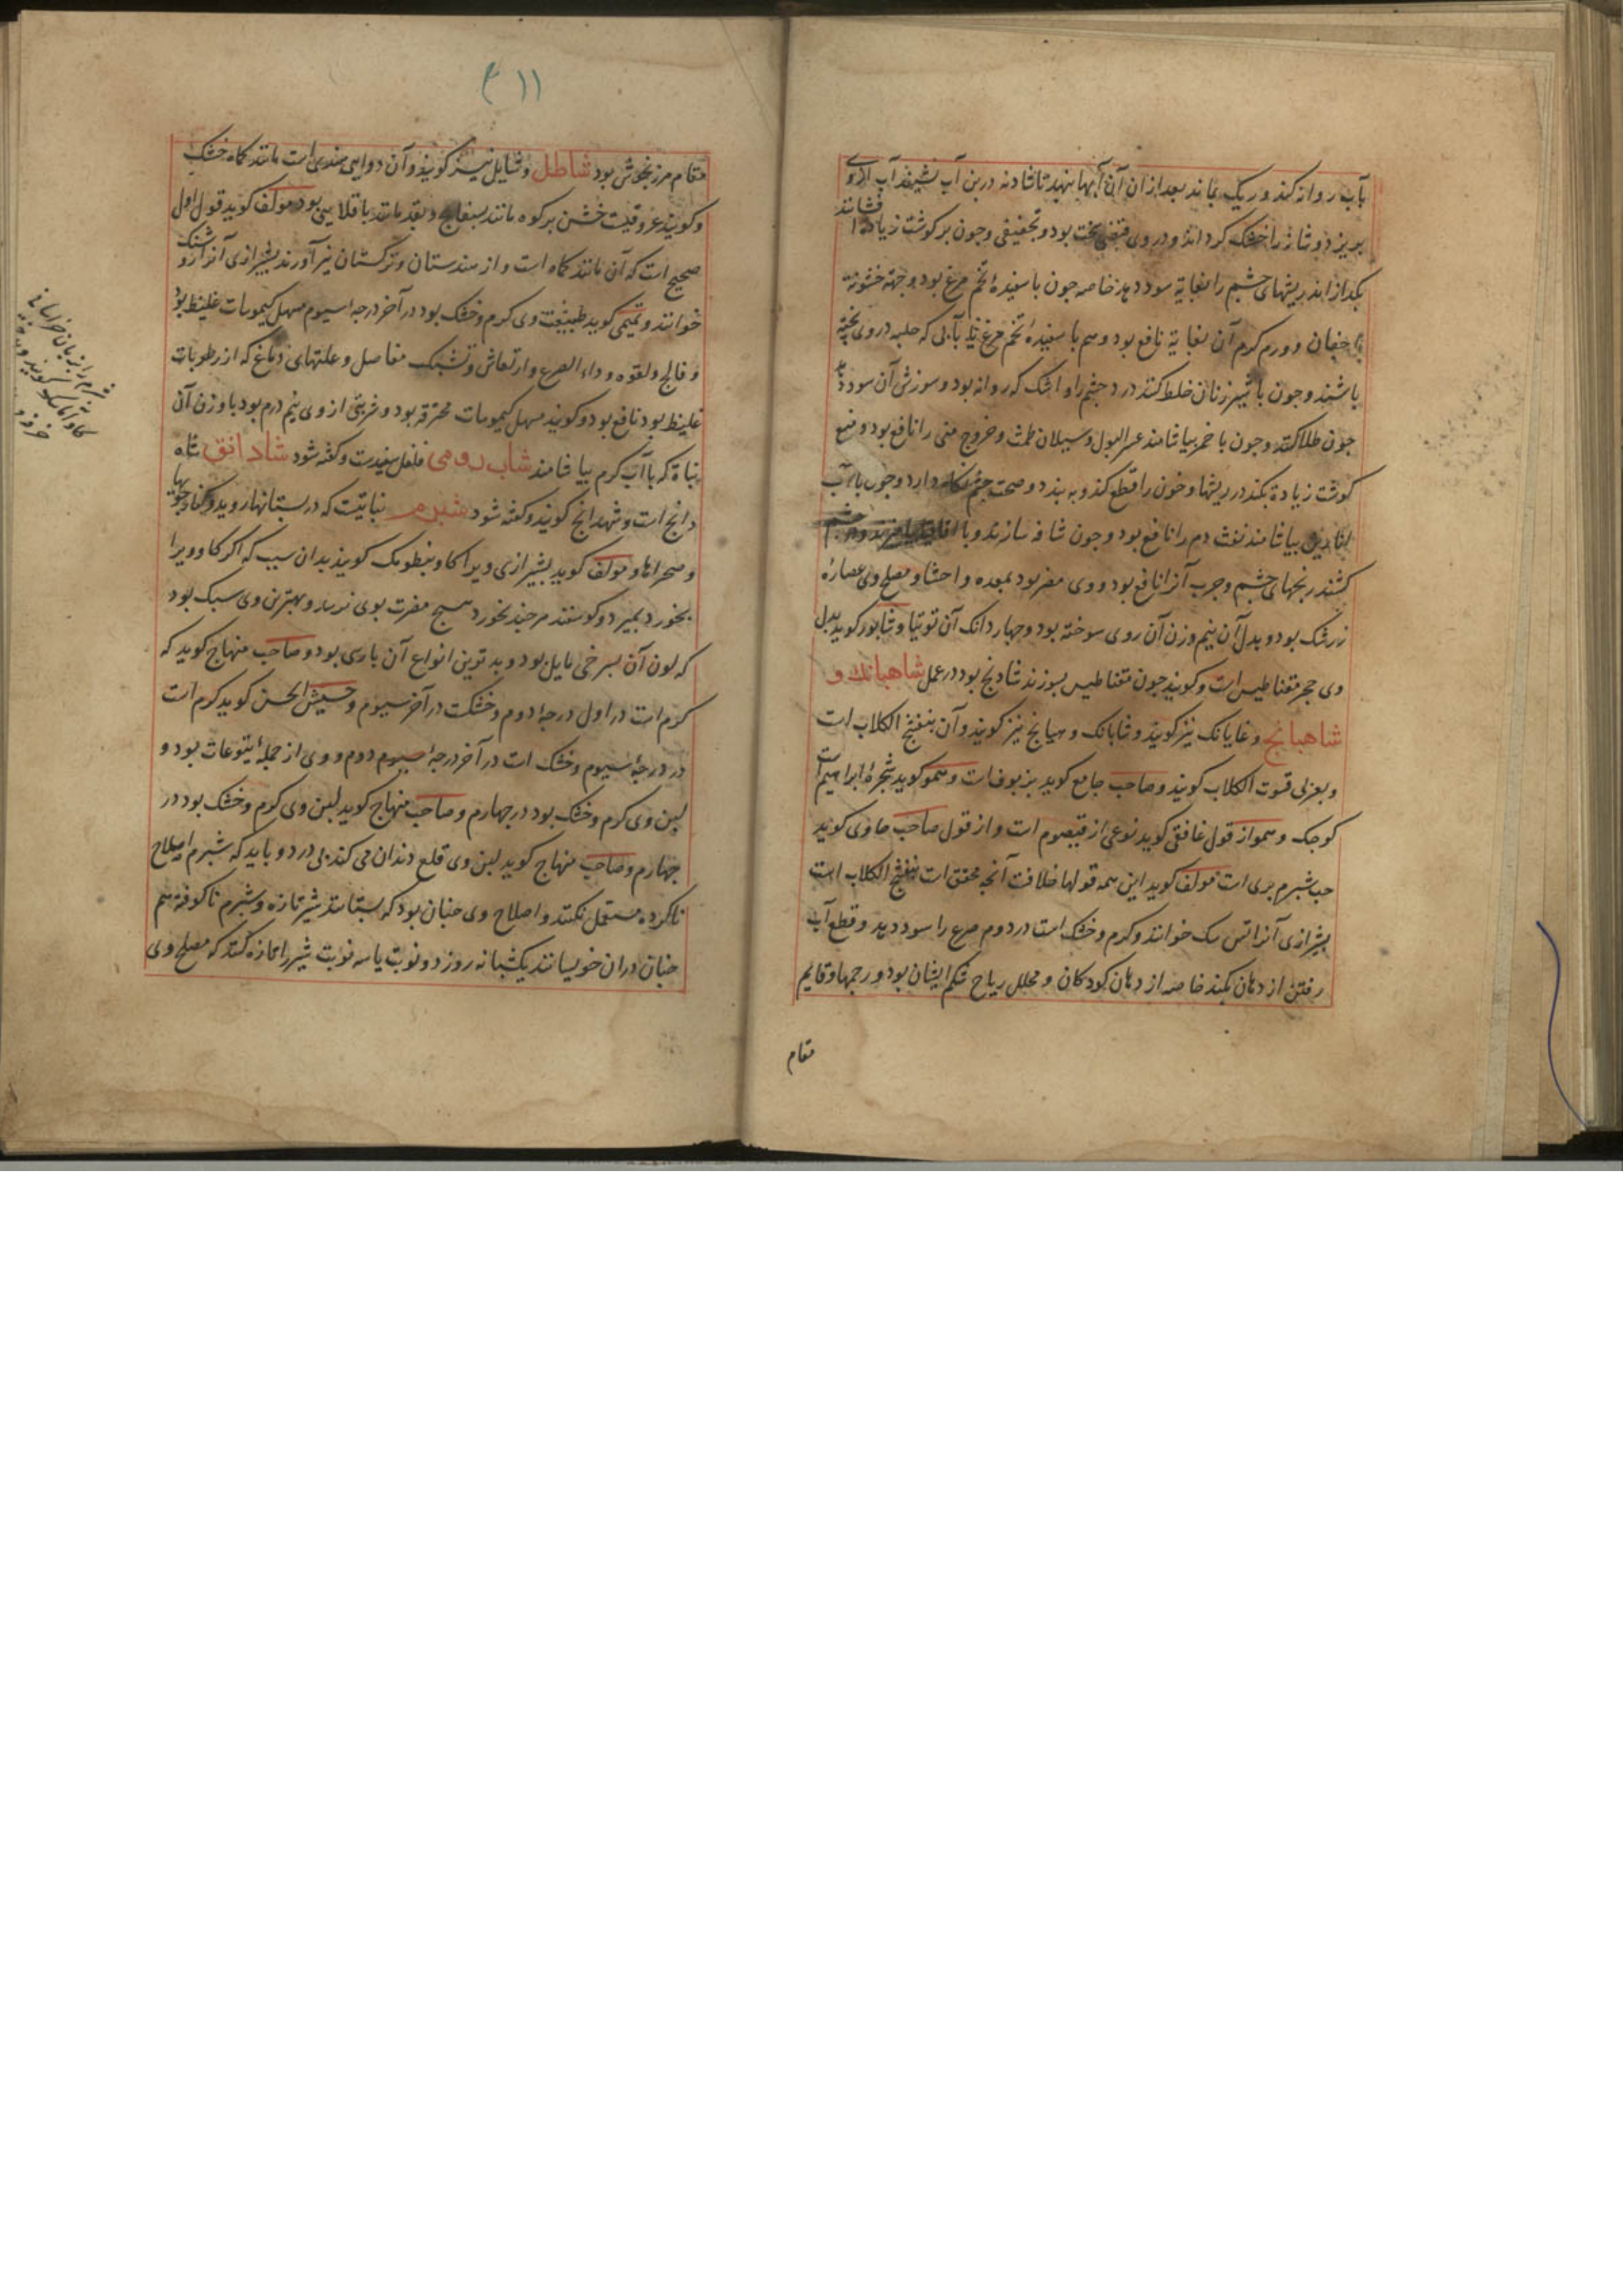 بآب روانه کند و ریک بماند بعد از ان آن آبها بنهد تا شادنه درین آب نشیند آب از وی
بریزد و شادنه را خشک کرداند و در وی قبضی سخت بود و تجفیفی و جون بر کوشت زیاده افشانند
بکدازاند ریشهای جشم را بغایة سود دهد خاصه جون با سفیدهٔ تخم مرغ بود و جهة خشونة
اجفان و ورم کرم آن بغایة نافع بود و هم با سفیدهٔ تخم مرغ یا بآبی که حلبه در وی پخته
باشند و جون با شیر زنان خلط کنند درد جشم را و اشک که روانه بود و سوزش آن سود دهد
جون طلا کنند و جون با خمر بیاشامند عسر البول و سیلان طمث و خروج منی را نافع بود و منع
کوشت زیادة بکند در ریشها و خون را قطع کند و به بندد و صحت جشم نکاه دارد و جون با آب
انارین بیاشامند نفث دم را نافع بود و جون شافه سازند و با اقاقیا
کشند رنجهای جشم و جرب آنرا نافع بود و وی مضر بود بمعده و احشا و مصلح وی عصارهٔ
زرشک بود و بدل آن نیم وزن آن روی سوخته بود و جهار دانک آن توتیا و شابور کوید بدل
وی حجر مقناطیس است و کویند جون مقناطیس بسوزند شادنج بود در عمل شاهبانک و
شاهبانج و غایانک نیز کویند و شابانک و هبانج نیز کویند و آن بنفنج الکلاب است
و بعربی فسوت الکلاب کویند و صاحب جامع کوید بزبوفات و همو کوید شجرهٔ ابراهیم است
کوجک و همو از قول غافقی کوید نوعی از قیصوم است و از قول صاحب حاوی کوید
حب شبرم بری است مولف کوید این همه قولها خلافت آنجه محقق است بنفنج الکلاب است
بشیرازی آنرا تس سک خوانند و کرم و خشک است در دوم صرع را سود دهد و قطع آب
رفتن از دهان بکند خاصه از دهان کودکان و محلل ریاح شکم ایشان بود و رحمها و قایم
مقام
۱۱
مقام مرزنجوش بود شاطل و شایل نیز کویند و آن دوایی هندی است مانند کماه خشک
و کویند عروقیست خشن بر کوه مانند بسفایج و بقدر مانند باقلایی بود مولف کوید قول اول
صحیح است که آن مانند کماه است و از هندستان و ترکستان نیز آورند بشیرازی آنرا روشنک
خوانند و تمیمی کوید طبیعت وی کرم و خشک بود در آخر درجهٔ سیوم مسهل کیموسات غلیظ بود
و فالج و لقوه و داء الصرع و ارتعاش و تشبک مفاصل و علتهای دماغ که از رطوبات
غلیظ بود نافع بود و کویند مسهل کیموسات محترقه بود و شربتی از وی نیم درم بود با وزن آن
نباة که با آب کرم بیاشامند شاب رومی فلفل سفیدست و کفته شود شادانق شاه
دانج است و شهدانج کویند و کفته شود شبرم نباتیست که در بستانها روید و کنار جویها
و صحراها و مولف کوید بشیرازی ویرا کاو بنطومک کویند بدان سبب که اکر کاو ویرا
بخورد بمیرد و کوسفند هرجند بخورد هیج مضرت بوی نرساند و بهترین وی سبک بود
که لون آن بسرخی مایل بود و بدترین انواع آن بارسی بود و صاحب منهاج کوید که
کرم است در اول درجهٔ دوم و خشکت در آخر سیوم و حبیش الحسن کوید کرم است
در درجهٔ سیوم و خشک است در آخر درجهٔ سیوم دوم و وی از جملهٔ یتوعات بود و
لبن وی کرم و خشک بود در جهارم و صاحب منهاج کوید لبن وی کرم و خشک بود در
جهارم و صاحب منهاج کوید لبن وی قلع دندان می کند بی درد و باید که شبرم اصلاح
ناکرده مستعمل نکنند و اصلاح وی جنان بود که بستانند شیر تازه و شبرم ناکوفته هم
جنان در ان خویسانند یکشبانه روز دو نوبت یا سه نوبت شیر را تازه کنند که مصلح وی